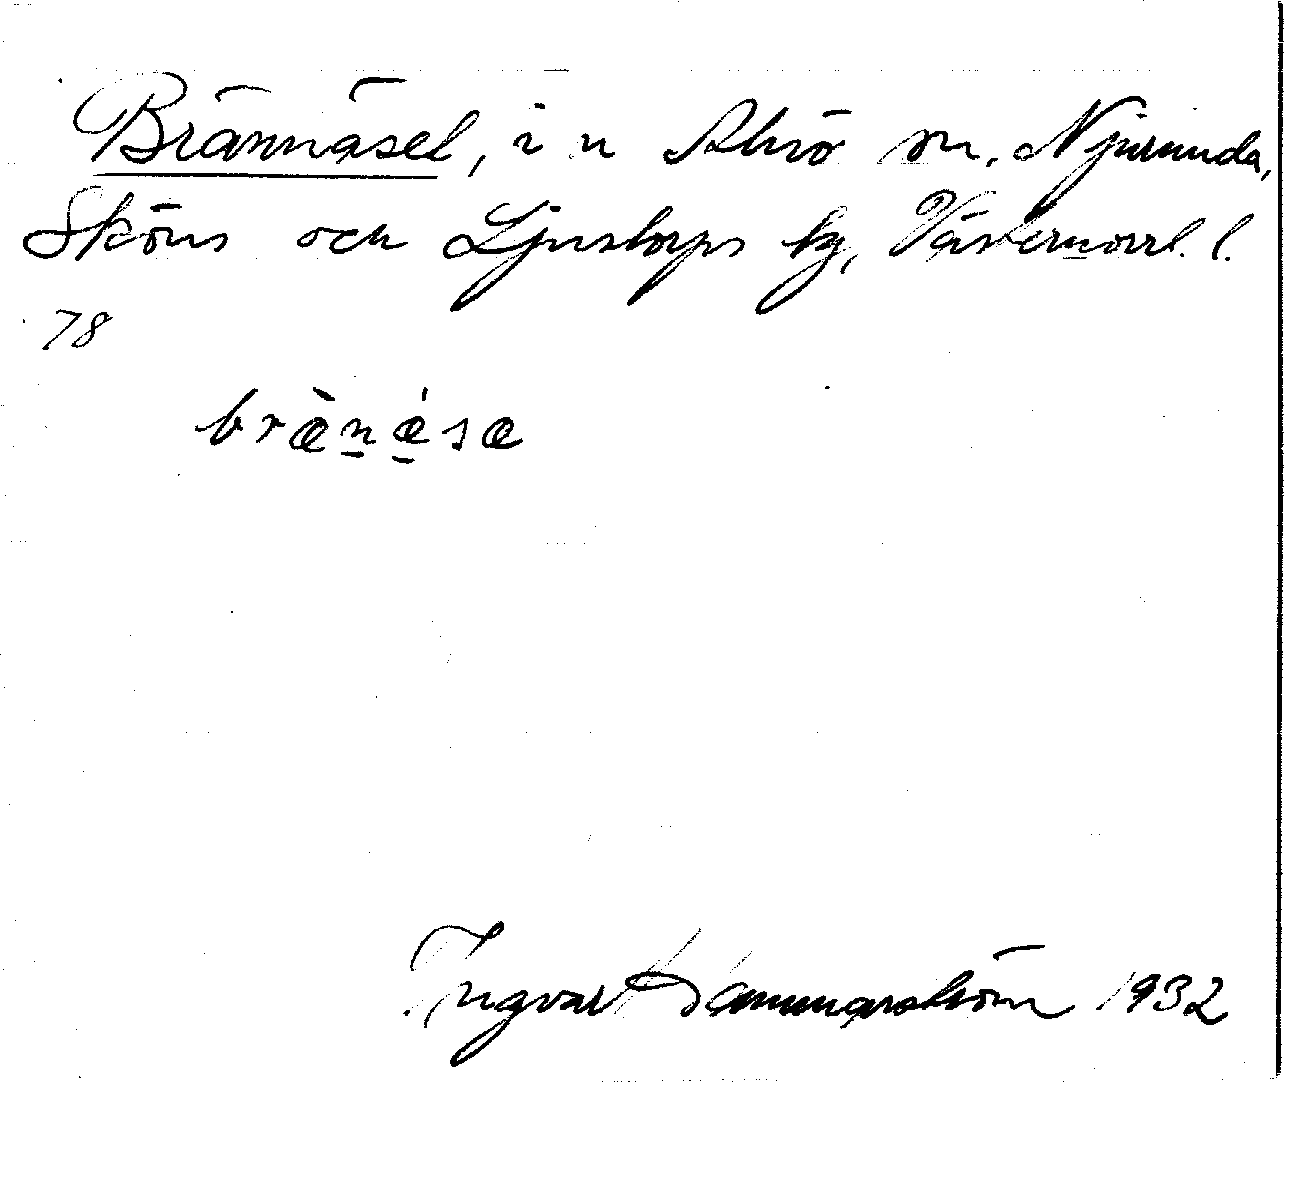 Brännäsel, i n Alnö sn, Njurunda,
Sköns och Ljustorps tg, Västernorrl. l.
78
bræ̀n̠ǽ̠sæ
Ingvar Hammarström 1932